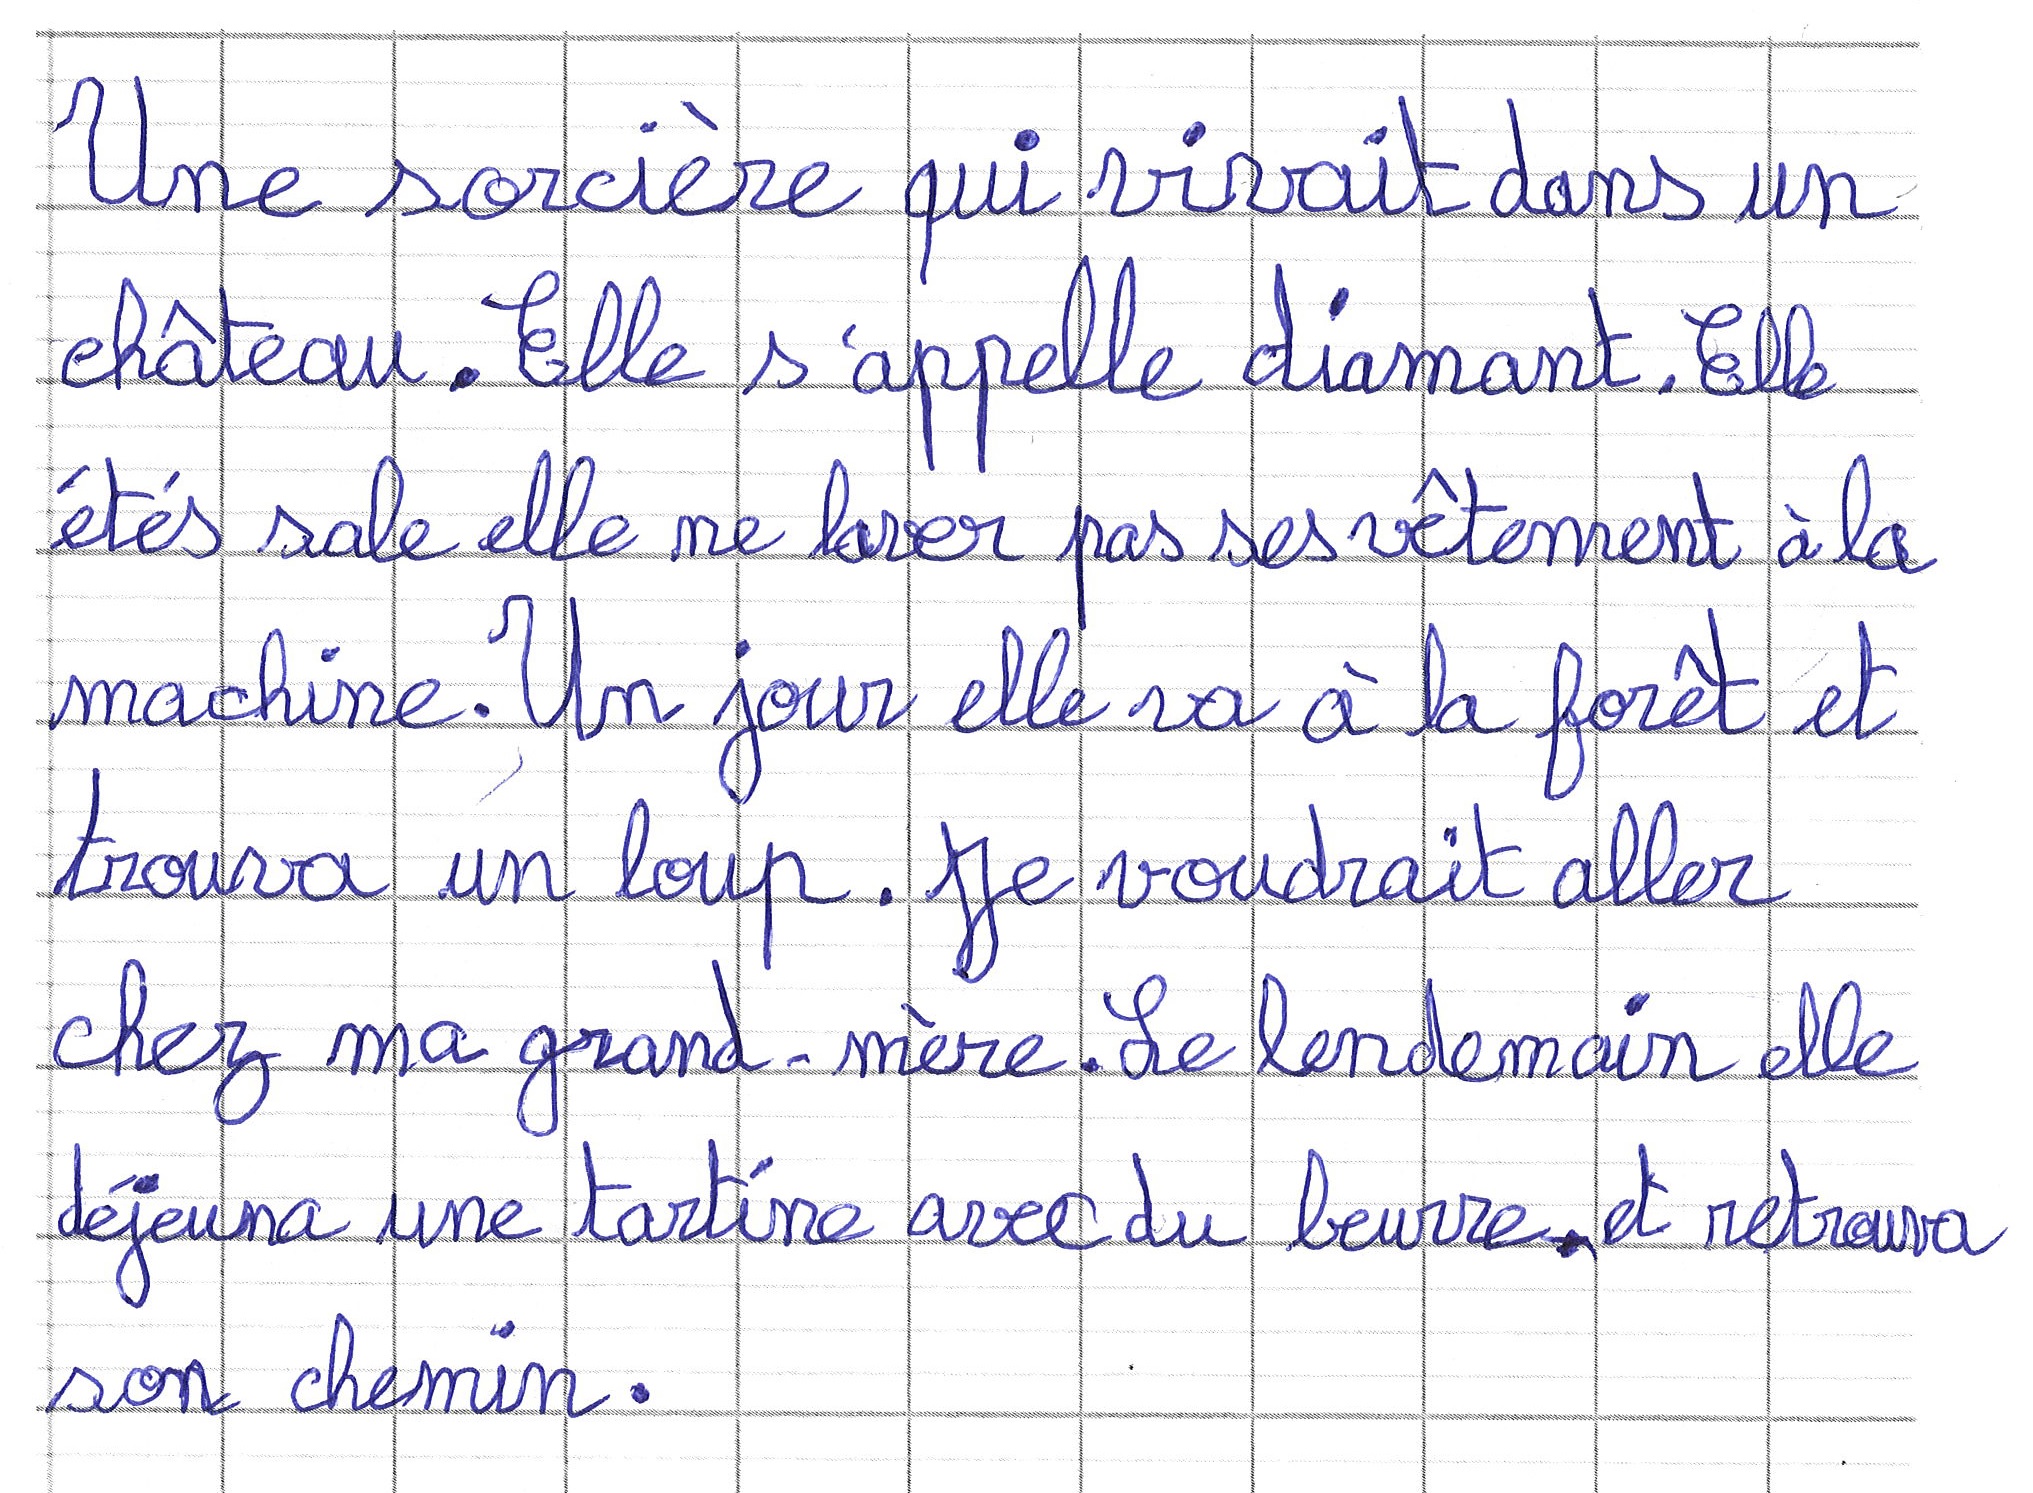 Une sorcière qui vivait dans un
château. Elle s'appelle diamant. Elle
étés sale elle ne laver pas ses vêtement à la
machine. Un jour elle va à la forêt et
trouva un loup. Je voudrait aller
chez ma grand-mère. Le lendemain elle
déjeuna une tartine avec du beurre. et retrouva
son chemin.